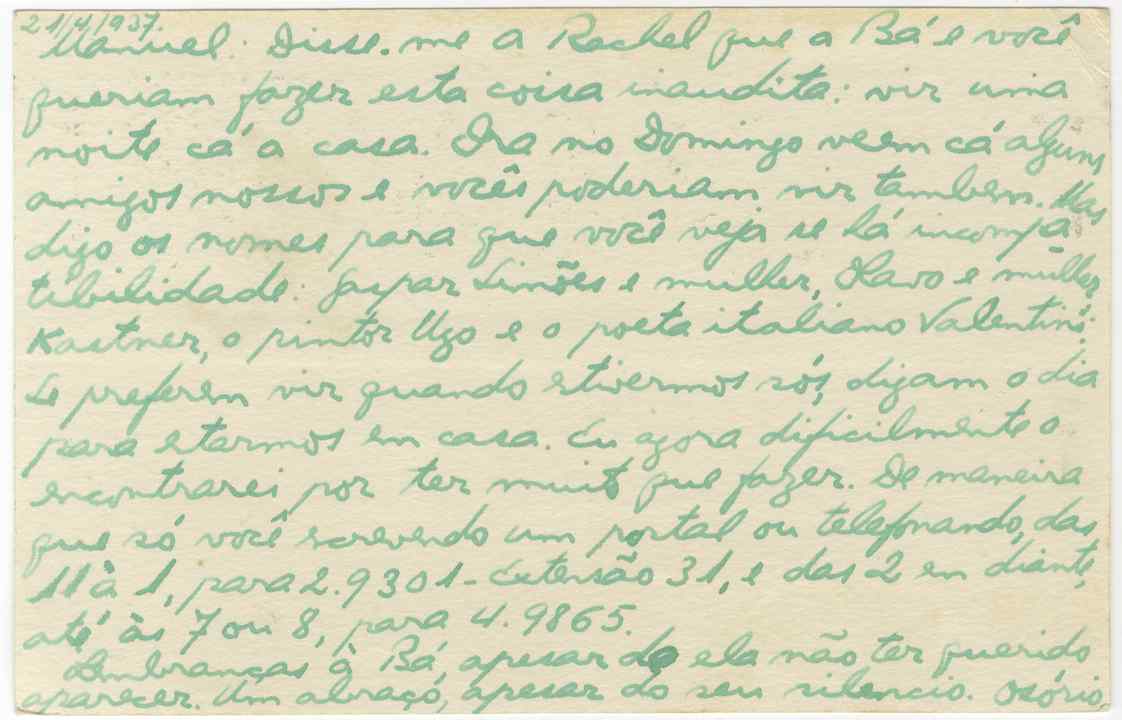 21/4/937.
Manuel: Disse-me a Rachel que a Bá e você
queriam fazer esta coisa inaudita: vir uma
noite cá a casa. Ora no Domingo veem cá alguns
amigos nossos e vocês poderiam vir tambem. Mas
digo os nomes para que você veja se há incompa-
tibilidade: Gaspar Simões e mulher, Olavo e mulher,
Kastner, o pintor Ugo e o poeta italiano Valentini.
Se preferem vir quando estivermos sós, digam o dia
para estarmos em casa. Eu agora dificilmente o
encontrarei por ter muito que fazer. De maneira
que só você escrevendo um postal ou telefonando, das
11 à 1, para 2.9301 - Extensão 31, e das 2 em diante,
até às 7 ou 8, para 4.9865.
Lembranças à Bá, apesar de ela não ter querido
aparecer. Um abraço, apesar do seu silencio. Osório